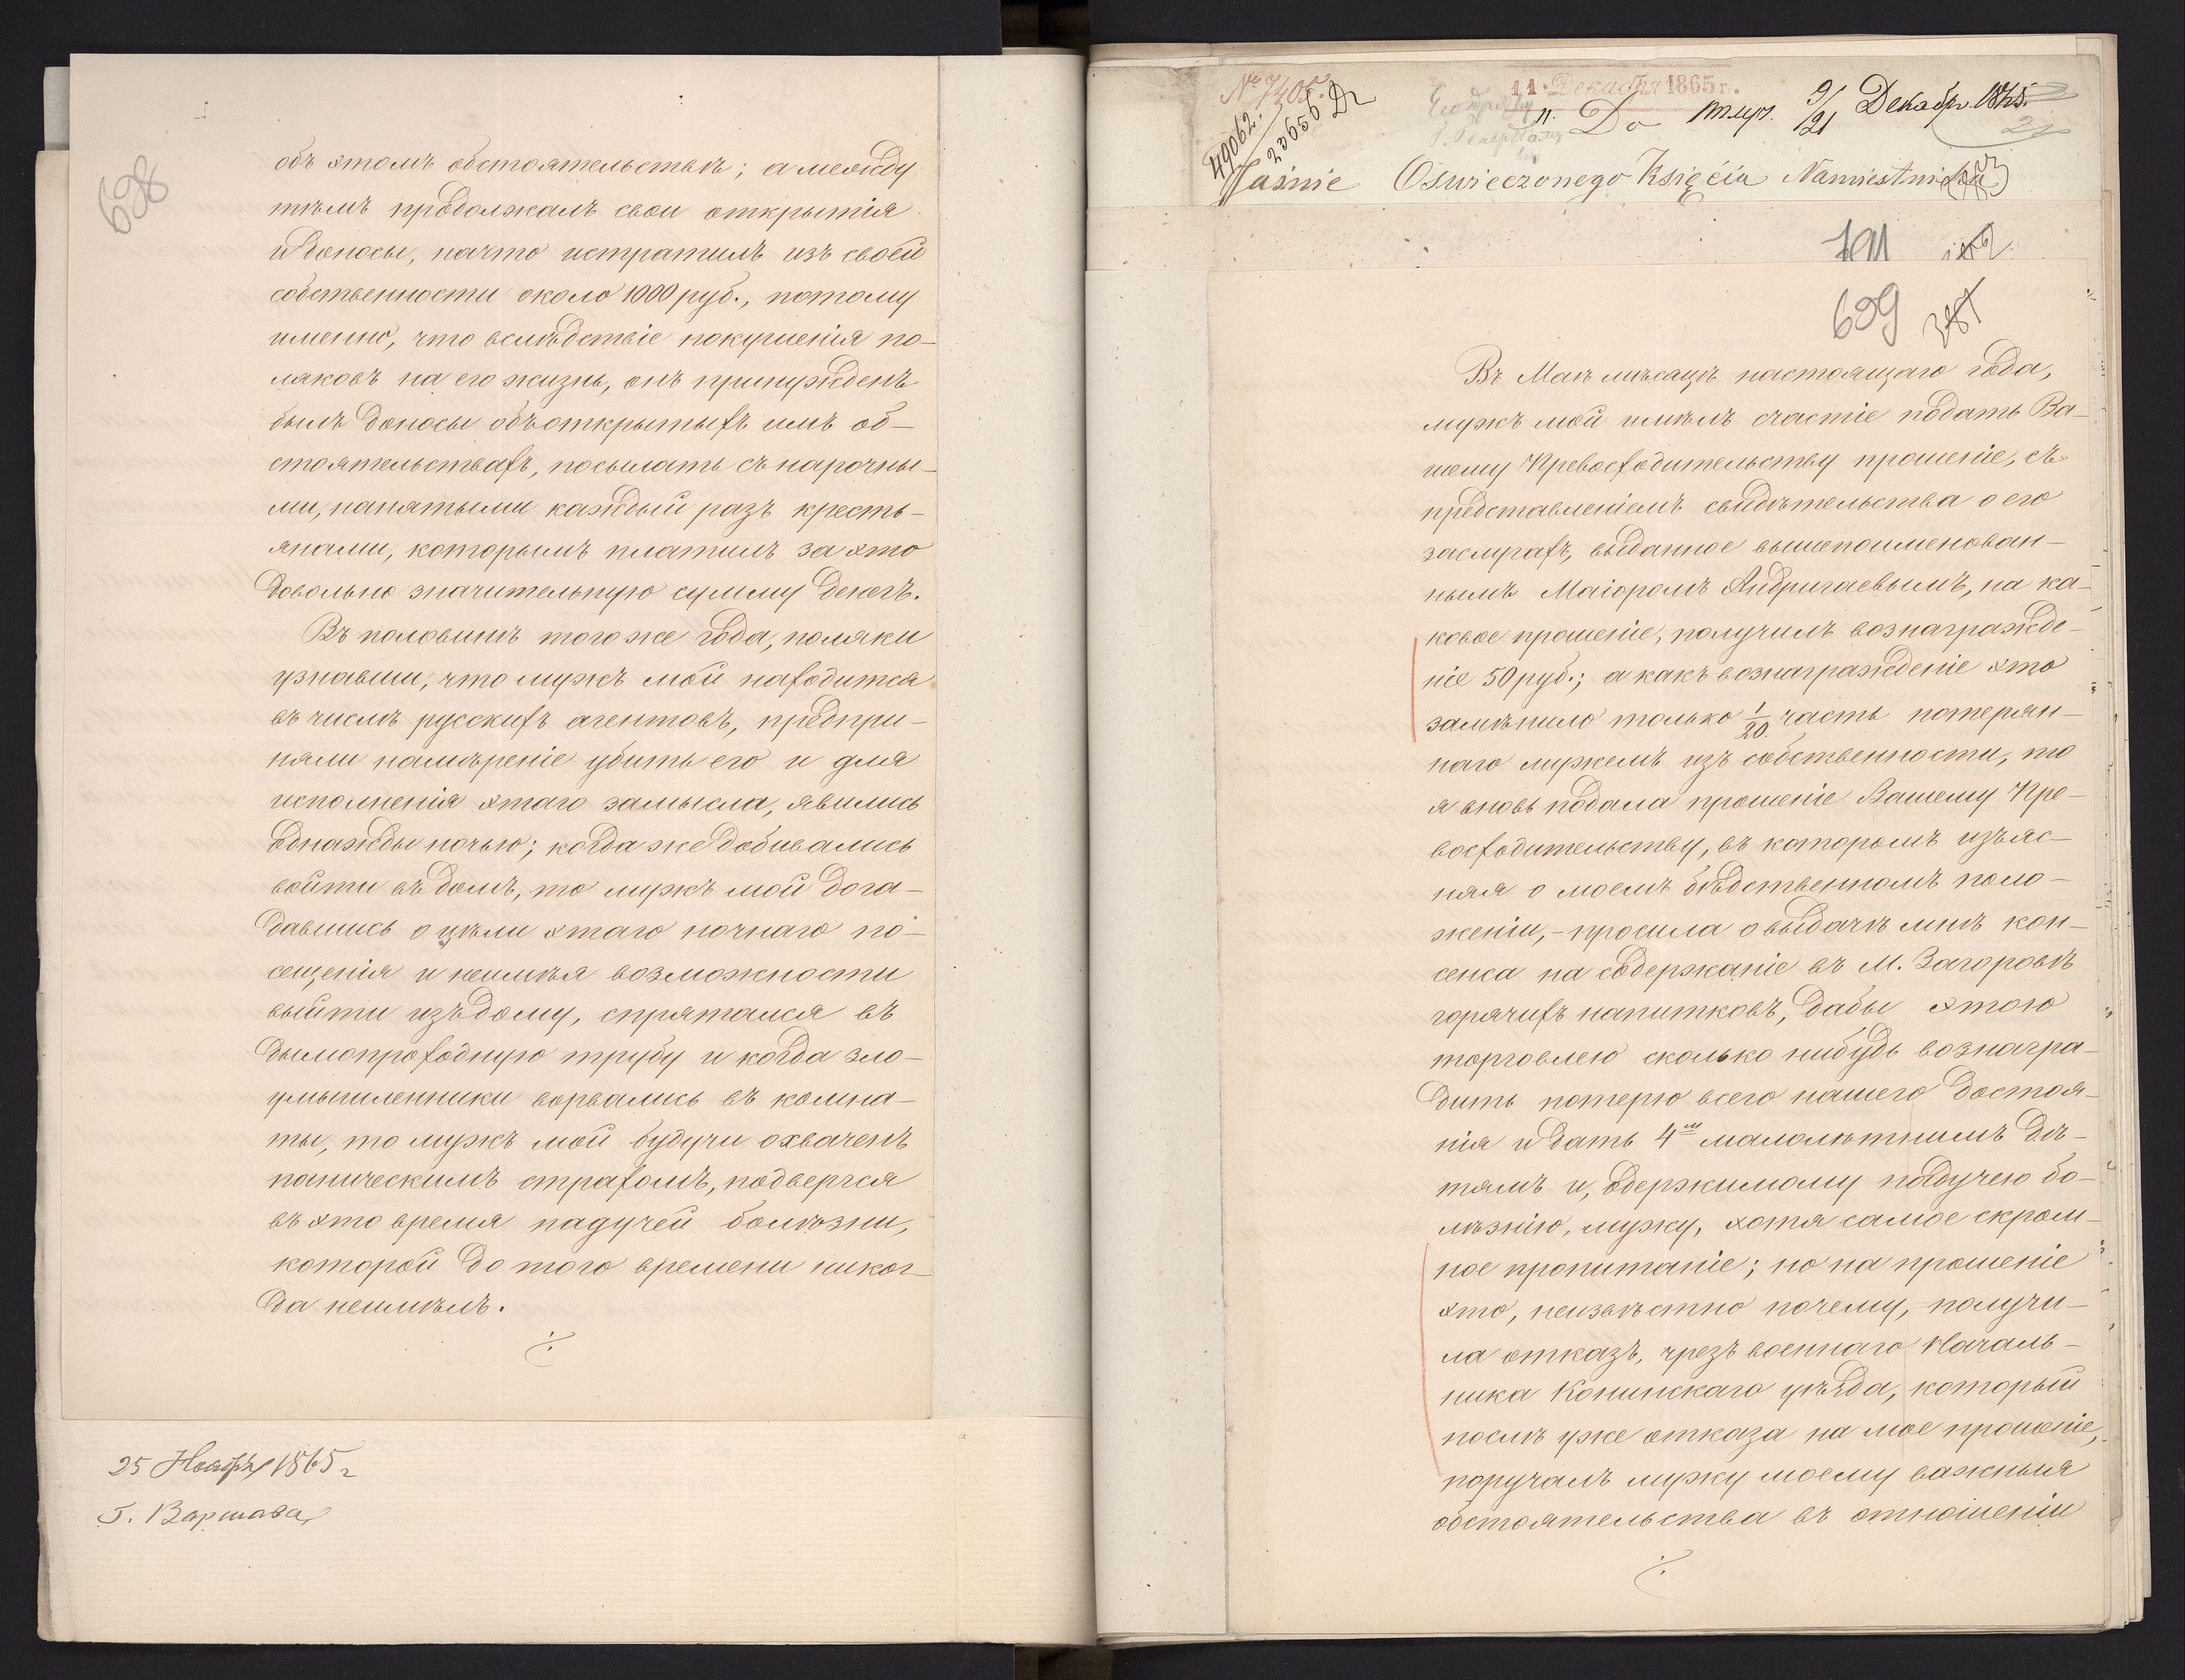 698
объ этомъ обстоятельствѣ; а между
тѣмъ продолжалъ свои открытія
и доносы, начто истратилъ изъ своей
собственности около 1000 руб., потому
именно, что вслѣдствіе покушенія по-
ляковъ на его жизнь, онъ принужденъ
былъ доносы объ открытыхъ имъ об-
стоятельствахъ, посылать съ нарочны-
ми, нанятыми каждый разъ кресть-
янами, которымъ платилъ за это
довольно значительную сумму денегъ.
Въ половинѣ того же года, поляки
узнавши, что мужъ мой находится
въ числѣ русскихъ агентовъ, предпри-
няли намѣреніе убить его и для
исполненія этаго замысла, явились
однажды ночью; когда же добивались
войти въ домъ, то мужъ мой дога-
давшись о цѣли этаго ночнаго по-
сещенія и неимѣя возможности
выйти изъ дому, спрятался въ
дымопроходную трубу и когда зло-
умышленники ворвались въ комна-
ты, то мужъ мой будучи охваченъ
паническимъ страхомъ, подвергся
въ это время падучей болѣзни,
которой до того времени никог-
да неимѣлъ.
25 Ноября 1865 г
Г. Варшава
№ 7405
49062.
23656
11 Декабря 1865 г.
Do
9/21 Декабр. 1865.
Jaśnie Oswieczonego Księcia Namiestnika
701
699
387
Въ Маѣ мѣсяцѣ настоящаго года,
мужъ мой имѣлъ счастіе подать Ва-
шему Превосходительству прошеніе, съ
представленіемъ свидѣтельства о его
заслугахъ, выданное вышепоименован-
нымъ Маіоромъ Андригаевымъ, на ка-
ковое прошеніе, получилъ вознагражде-
ніе 50 руб.; а какъ вознагражденіе это
замѣнило только 1/20 часть потерян-
наго мужемъ изъ собственности, то
я вновь подала прошеніе Вашему Пре-
восходительству, въ которомъ изъяс-
няя о моемъ бѣдственномъ поло-
женіи, - просила о выдачѣ мнѣ кон-
сенса на содержаніе въ М. Загоровѣ
горячихъ напитковъ, дабы этою
торговлею сколько нибудь вознагра-
дить потерю всего нашего достоя-
нія и дать 4ᵐ малолѣтнимъ дѣ-
тямъ и, одержимому падучею бо-
лѣзнію, мужу, хотя самое скром-
ное пропитаніе; но на прошеніе
это, неизвѣстно почему, получи-
ла отказъ, чрезъ военнаго Началь-
ника Конинскаго уѣзда, который
послѣ уже отказа на мое прошеніе,
поручалъ мужу моему важныя
обстоятельства въ отношеніи